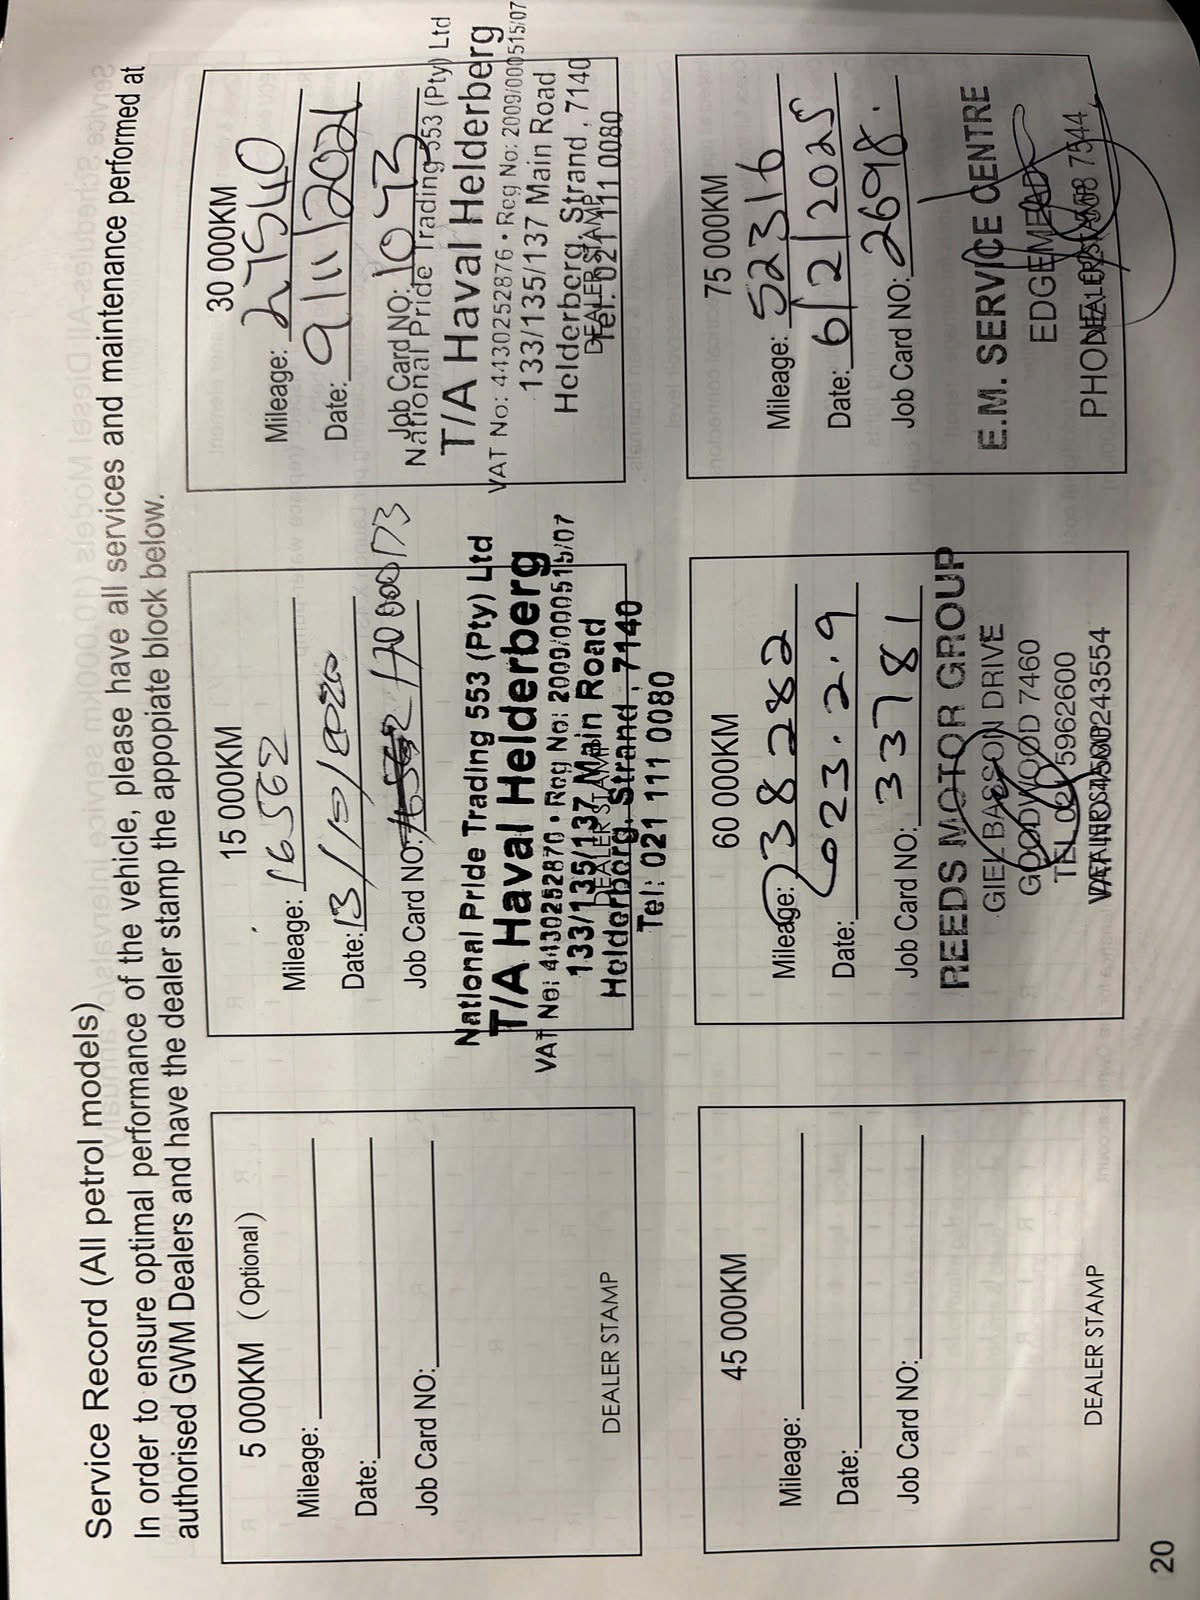 Service Record (All petrol models)
In order to ensure optimal performance of the vehicle, please have all services and maintenance performed at
authorised GWM Dealers and have the dealer stamp the appopiate block below.
5 000KM (Optional)
Mileage:
Date:
Job Card NO:
DEALER STAMP
15 000KM
Mileage: 16562
Date: 13/10/2020
Job Card NO: 17000173
National Pride Trading 553 (Pty) Ltd
T/A Haval Helderberg
VAT No: 4430252876 • Reg No: 2009/000515/07
133/135/137 Main Road
DEALER STAMP
Helderberg, Strand, 7140
Tel: 021 111 0080
30 000KM
Mileage: 27540
Date: 9/11/2021
Job Card NO: 1043
National Pride Trading 553 (Pty) Ltd
T/A Haval Helderberg
VAT No: 4430252876 • Reg No: 2009/000515/07
133/135/137 Main Road
Helderberg, Strand, 7140
DEALER STAMP
Tel: 021 111 0080
45 000KM
Mileage:
Date:
Job Card NO:
DEALER STAMP
60 000KM
Mileage: 38282
Date: 023.2.9
Job Card NO: 33781
REEDS MOTOR GROUP
GIEL BASSON DRIVE
GOODWOOD 7460
TEL 021 5962600
DEALER STAMP
75 000KM
Mileage: 52316
Date: 6/2/2025
Job Card NO: 2698.
E.M. SERVICE CENTRE
EDGEMEAD
DEALER STAMP
20